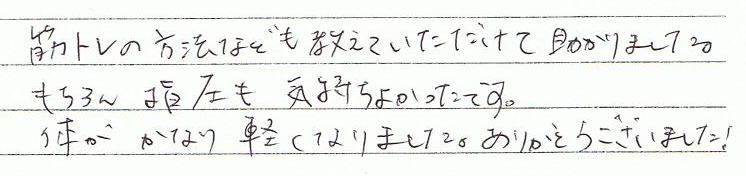 筋トレの方法なども教えていただけて助かりました。
もちろん指圧も気持ちよかったです。
体がかなり軽くなりました。ありがとうございました!